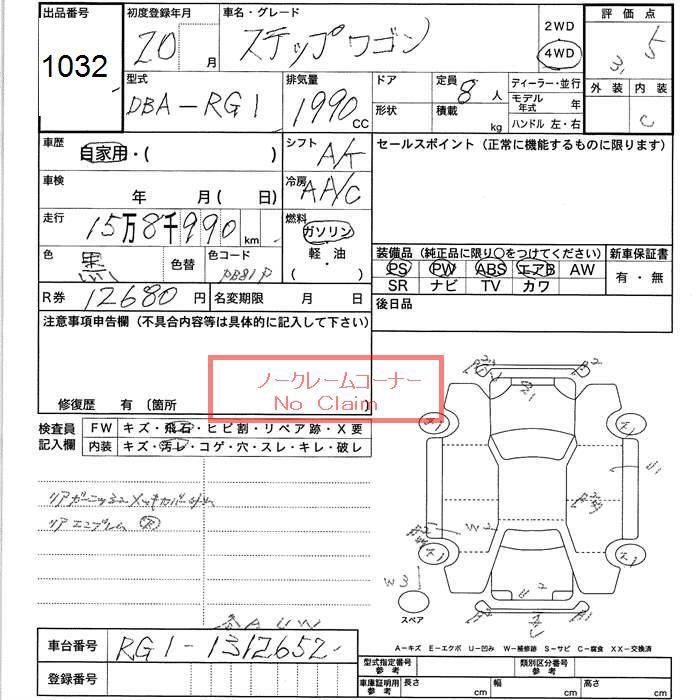 出品番号 初度登録年月 車名・グレード 2WD 評価点
1032 20 月 ステップワゴン 4WD 5
外装 内装
型式 排気量 ドア 定員 8 人 ディーラー・並行
DBA-RG1 1990 CC 形状 積載 kg モデル年式 年 C
ハンドル 左・右
車歴 自家用・( ) シフト A/T セールスポイント (正常に機能するものに限ります)
車検 年 月( 日) 冷房 AA/C
走行 15万8千990 km 燃料 ガソリン
軽・油
( )
色 黒 色替 色コード PB81P
装備品 (純正品に限り○をつけてください) 新車保証書
PS PW ABS エアB AW 有・無
SR ナビ TV カワ
R券 12680 円 名変期限 月 日 後日品
注意事項申告欄 (不具合内容等は具体的に記入して下さい)
ノークレームコーナー
No Claim
修復歴 有 (箇所 )
検査員記入欄 FW キズ・飛石・ヒビ割・リペア跡・X要
内装 キズ・汚レ・コゲ・穴・スレ・キレ・破レ
リアエンブレム
スペア
A-キズ E-エクボ U-凹み W-補修跡 S-サビ C-腐食 XX-交換済
車台番号 RG1-1312652
登録番号
型式指定番号 参考 類別区分番号 参考
車庫証明用 参考 長さ cm 幅 cm 高さ cm